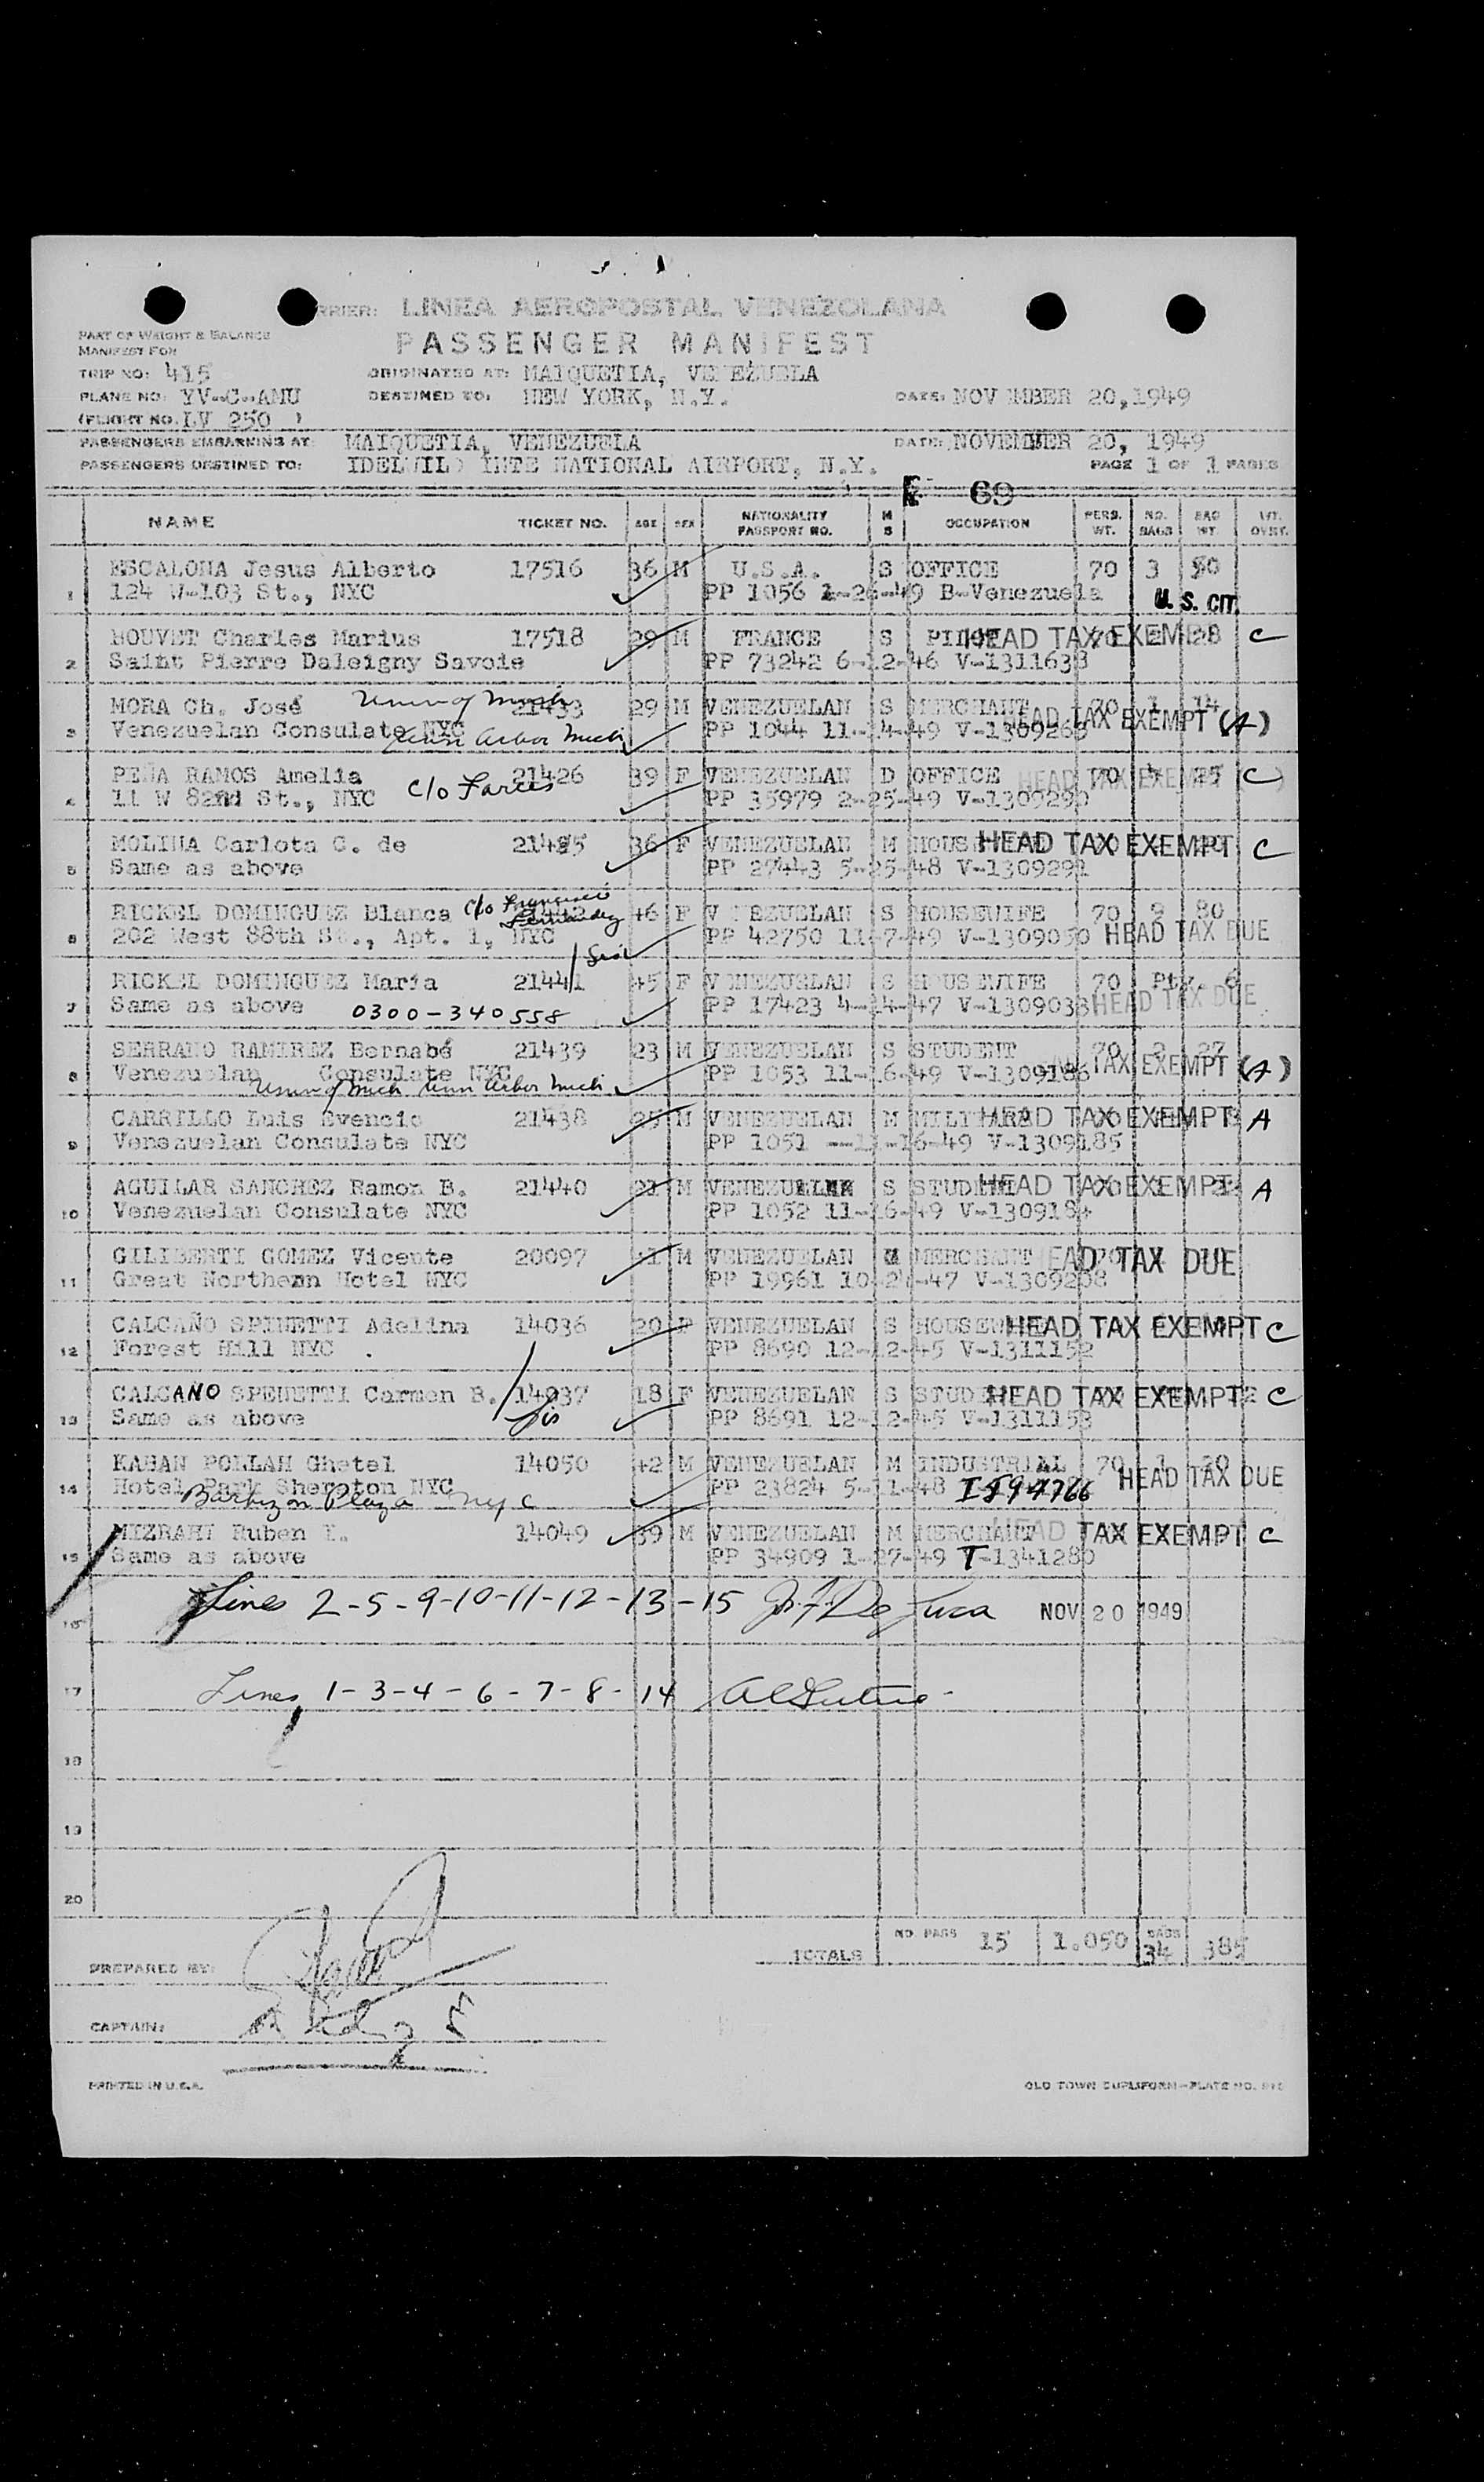 CARRIER: LINEA AEROPOSTAL VENEZOLANA
PART OF WEIGHT & BALANCE
MANIFEST FOR
PASSENGER MANIFEST
TRIP NO: 415 ORIGINATED AT: MAIQUETIA, VENEZUELA
PLANE NO: YV-C-AMU DESTINED TO: NEW YORK, N.Y. DATE: NOVEMBER 20, 1949
(FLIGHT NO. LV 250 )
PASSENGERS EMBARKING AT: MAIQUETIA, VENEZUELA DATE: NOVEMBER 20, 1949
PASSENGERS DESTINED TO: IDELWILD INTERNATIONAL AIRPORT, N.Y. PAGE 1 OF 1 PAGES
69
NAME TICKET NO. AGE SEX NATIONALITY PASSPORT NO. M S OCCUPATION PERS. WT. NO. BAGS BAG WT. WT. OVER.
ESCALONA Jesus Alberto 17516 36 M U.S.A. S OFFICE 70 3
1 124 W-103 St., NYC PP 1056 1-26-49 B-Venezuela U. S. CIT.
BOUVET Charles Marius 17518 29 M FRANCE S PILOT HEAD TAX EXEMPT C
2 Saint Pierre Daleigny Savoie PP 73242 6-12-46 V-1311638
MORA Ch. José Univ of Mich 21433 29 M VENEZUELAN S MERCHANT 70 1 14
3 Venezuelan Consulate NYC Ann Arbor Mich PP 1044 11-14-49 V-1309263 HEAD TAX EXEMPT (A)
PEÑA RAMOS Amelia 21426 39 F VENEZUELAN D OFFICE 70 HEAD TAX EXEMPT (C)
4 11 W 82nd St., NYC c/o PP 35979 2-25-49 V-1309290
MOLINA Carlota C. de 21425 36 F VENEZUELAN M HOUSEWIFE HEAD TAX EXEMPT C
5 Same as above PP 27443 5-25-48 V-1309291
RICKEL DOMINGUEZ Blanca c/o Francisco Fernandez 21442 46 F VENEZUELAN S HOUSEWIFE 70 2 80
6 202 West 88th St., Apt. 1, NYC PP 42750 11-7-49 V-1309050 HEAD TAX DUE
Sis
RICKEL DOMINGUEZ María 21441 45 F VENEZUELAN S HOUSEWIFE 70
7 Same as above 0300-340558 PP 17423 4-14-47 V-1309033 HEAD TAX DUE
SERRANO RAMIREZ Bernabé 21439 23 M VENEZUELAN S STUDENT 70 2 27
8 Venezuelan Consulate NYC PP 1053 11-16-49 V-1309186 HEAD TAX EXEMPT (A)
Univ of Mich Ann Arbor Mich
CARRILLO Luis Evencio 21438 25 M VENEZUELAN M MILITARE HEAD TAX EXEMPT A
9 Venezuelan Consulate NYC PP 1051 --11-16-49 V-1309185
AGUILAR SANCHEZ Ramon B. 21440 21 M VENEZUELAN S STUDENT HEAD TAX EXEMPT A
10 Venezuelan Consulate NYC PP 1052 11-16-49 V-1309184
GILIBERTI GOMEZ Vicente 20097 41 M VENEZUELAN M MERCHANT HEAD TAX DUE
11 Great Northern Hotel NYC PP 19961 10-2-47 V-1309208
CALCAÑO SPINETTI Adelina 14036 20 F VENEZUELAN S HOUSEWIFE HEAD TAX EXEMPT C
12 Forest Hill NYC . PP 8690 12-12-45 V-1311152
CALCANO SPENETTI Carmen B. 14037 18 F VENEZUELAN S STUDENT HEAD TAX EXEMPT C
13 Same as above Sis PP 8691 12-12-45 V-1311153
KAGAN POLLAH Ghetel 14050 42 M VENEZUELAN M INDUSTRIAL 70 1 20
14 Hotel Park Sheraton NYC PP 23824 5-11-48 HEAD TAX DUE
Barbizon Plaza NYC
MIZRAHI Ruben E. 14049 39 M VENEZUELAN M MERCHANT HEAD TAX EXEMPT C
15 Same as above PP 34909 1-27-49 T-1341280
16 Lines 2-5-9-10-11-12-13-15 J.F. De Luca NOV 20 1949
17 Lines 1-3-4-6-7-8-14
18
19
20
TOTALS NO. PASS 15 1.050 BAGS 34 385
PREPARED BY:
CAPTAIN:
PRINTED IN U.S.A. OLD TOWN DUPLIFORM-PLATE NO.